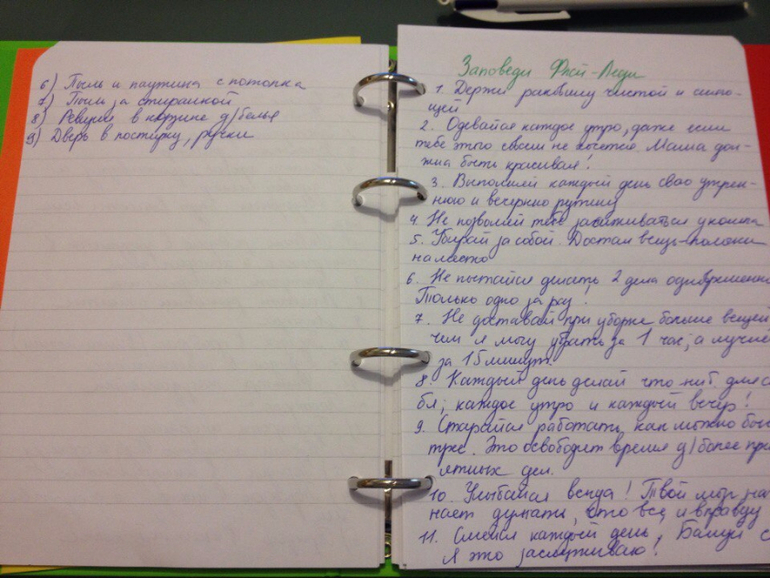 6) Пыль и паутина с потолка
7) Пыль за стиралкой
8) Ревизия в корзине д/белья
9) Дверь в постирку, ручки
Заповеди Флай-Леди
1. Держи раковину чистой и сияю-
щей
2. Одевайся каждое утро, даже если
тебе этого совсем не хочется. Мама дол-
жна быть красивая!
3. Выполняй каждый день свою утрен-
нюю и вечернюю рутину
4. Не позволяй себе засиживаться у компа
5. Убирай за собой. Достал вещь - положи
на место
6. Не пытайся делать 2 дела одновременно
Только одно за раз!
7. Не доставай при уборке больше вещей
чем я могу убрать за 1 час, а лучше
за 15 минут.
8. Каждый день делай что-ниб. для се
бя, каждое утро и каждый вечер!
9. Старайся работать как можно быс
трее. Это освободит время д/более при
ятных дел.
10. Улыбайся всегда! Твой мозг на
нает думать, что все и вправду
11. Смейся каждый день, Балуй с
Я это заслуживаю!